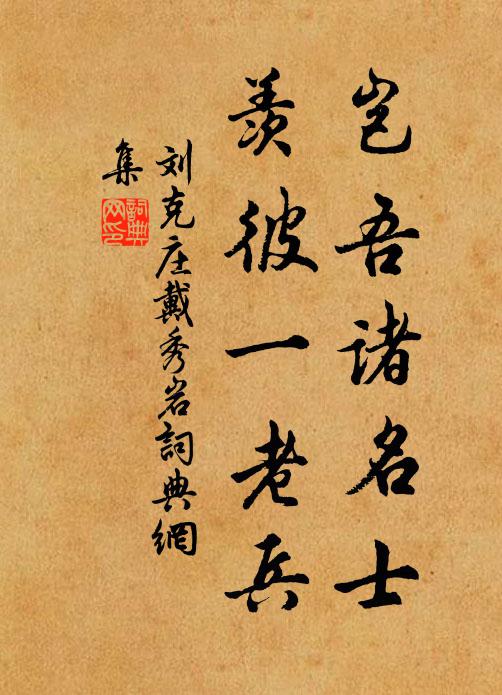 岂吾诸名士
羡彼一老兵
刘克庄戴秀岩詞典網
集
詞典网印